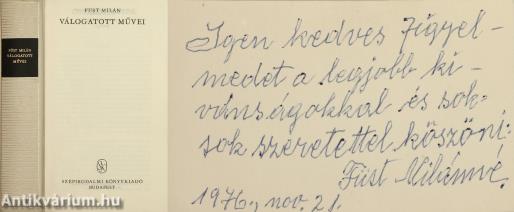 FÜST MILÁN
VÁLOGATOTT
MŰVEI
FÜST MILÁN
VÁLOGATOTT MŰVEI
SZÉPIRODALMI KÖNYVKIADÓ
BUDAPEST
Igen kedves figyel-
medet a legjobb kí-
vánságokkal és sok-
sok szeretettel köszöni:
Füst Milánné.
1976, nov. 21.
Antikvárium.hu
Antikvárium.hu